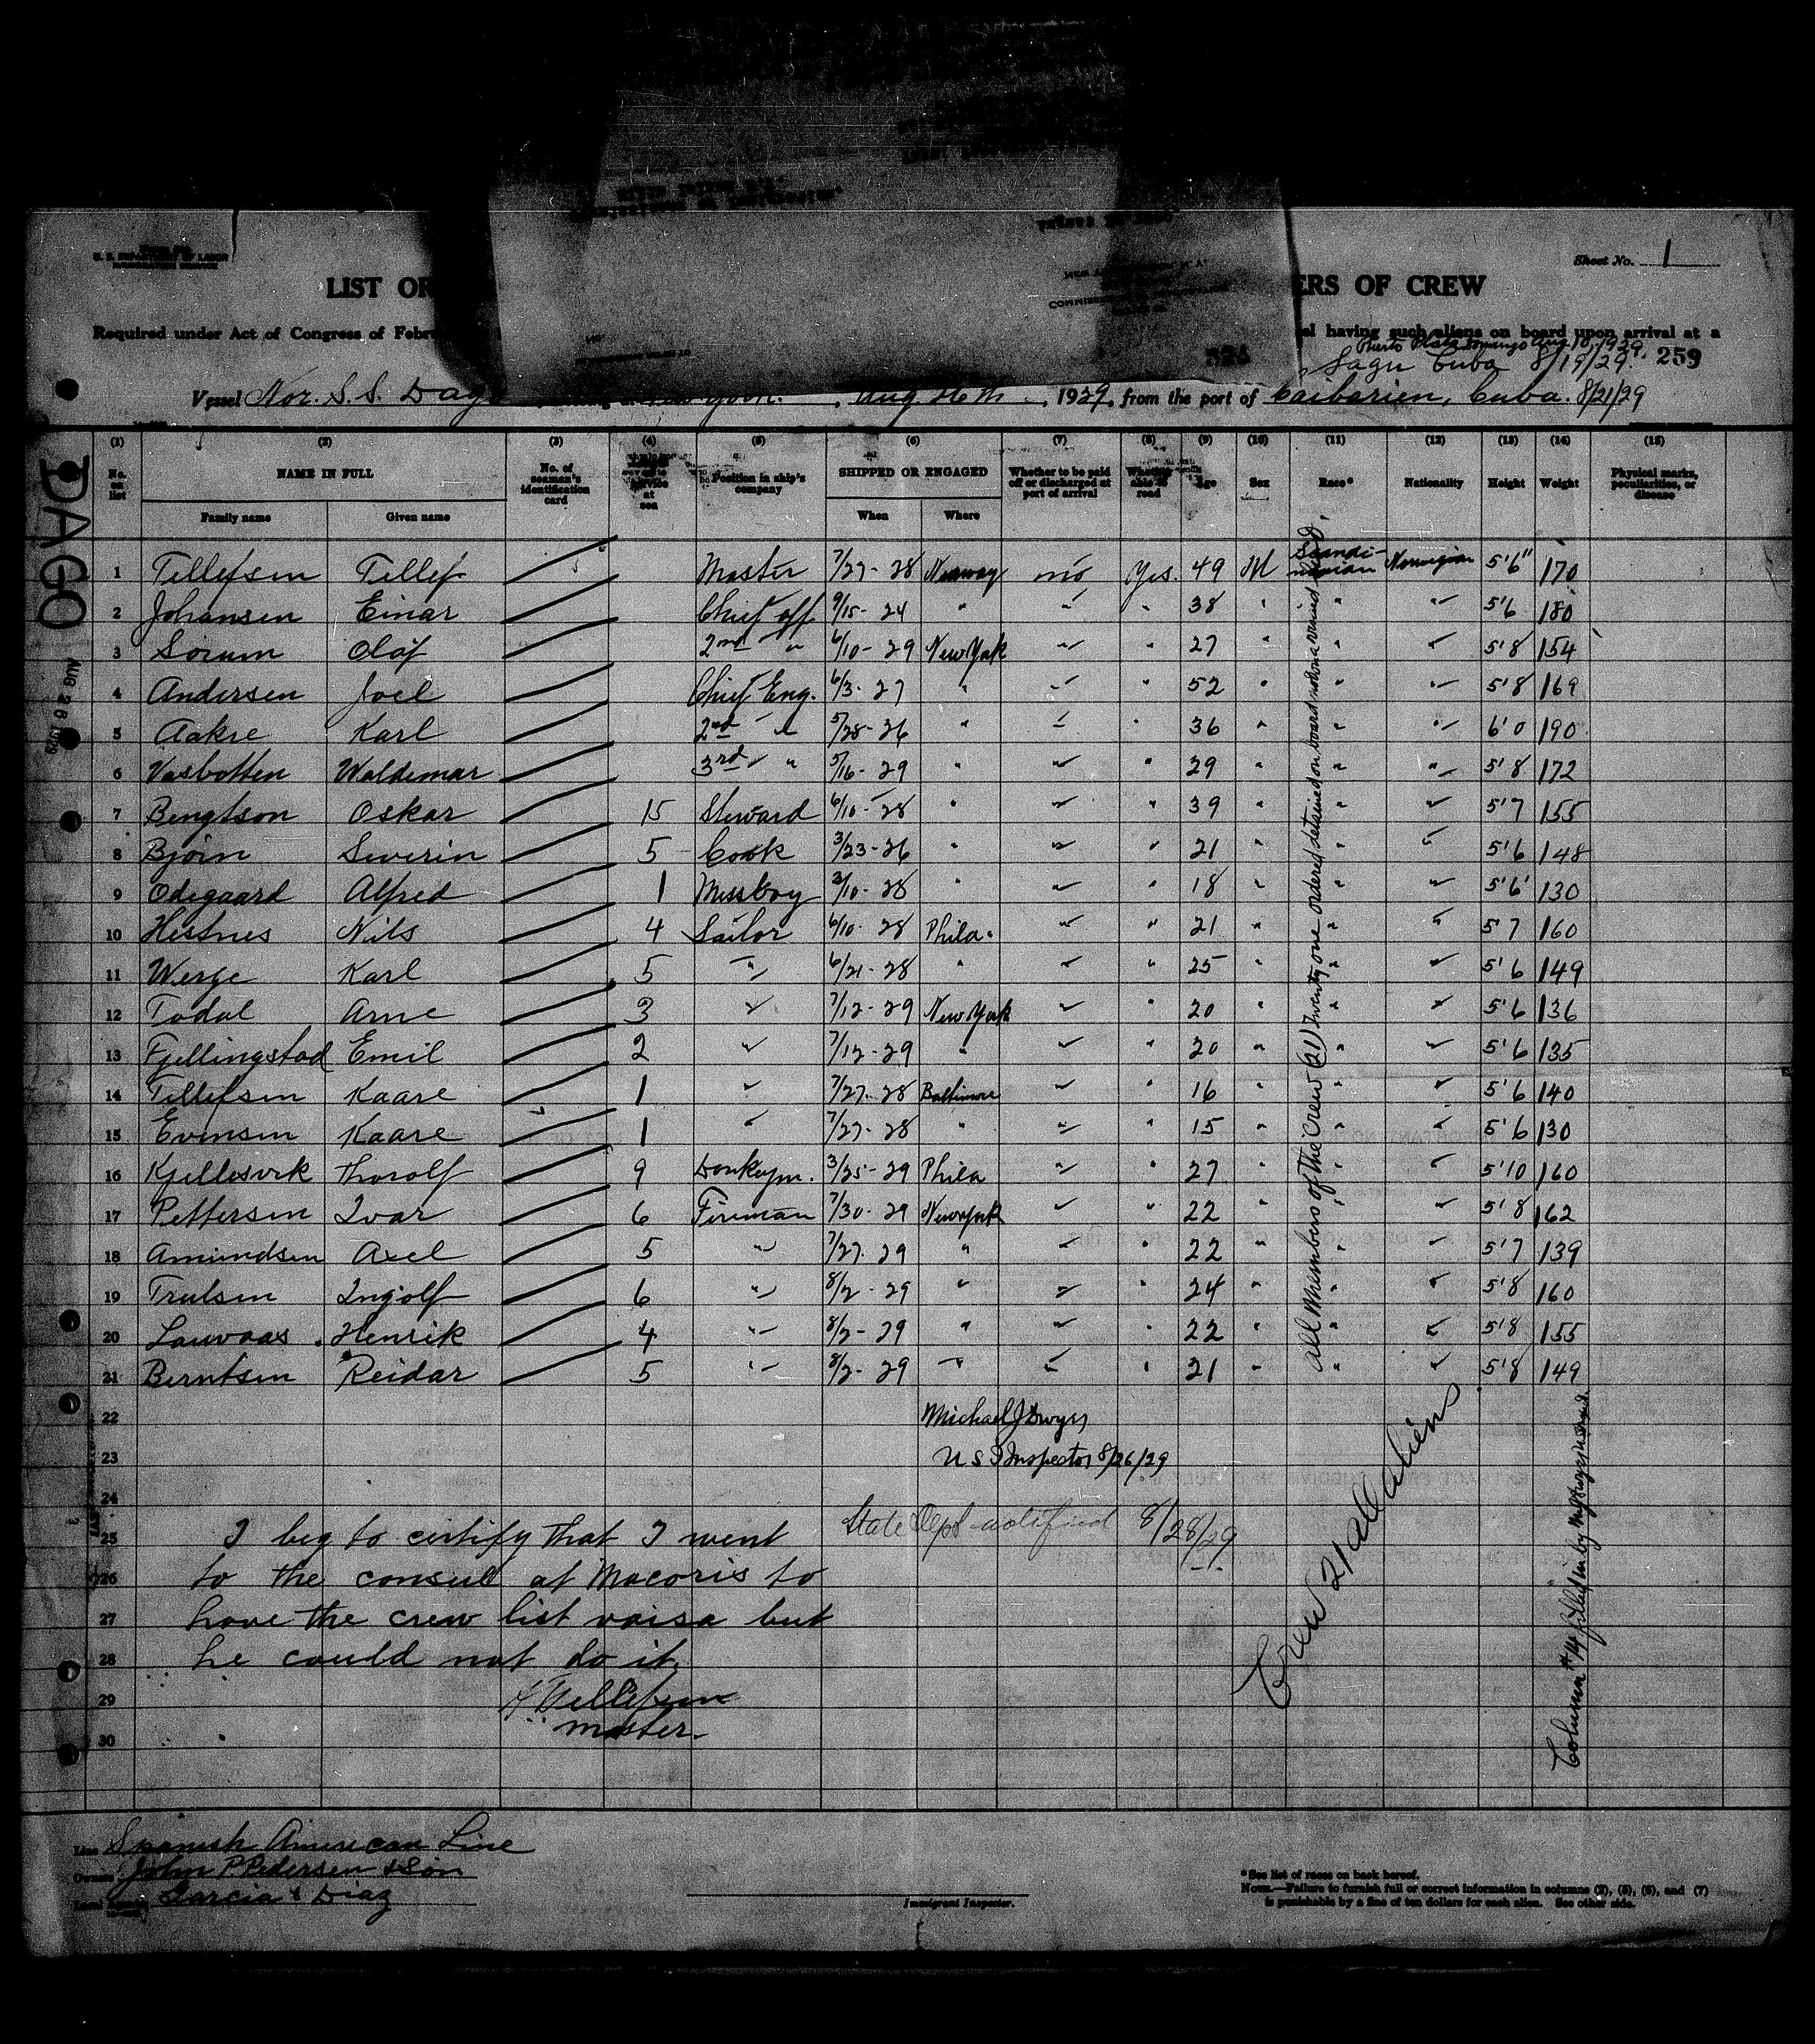 Sheet No. 1
LIST OR
ERS OF CREW
Required under Act of Congress of Febr
al having such aliens on board upon arrival at a
Puerto Plata Domingo Aug 18, 1929
Sagu Cuba 8/19/29. 259
Vessel Nor. S.S. Dago , Aug 26th , 1929, from the port of Caibarien, Cuba. 8/21/29
(1) (2) (3) (4) (5) (6) (7) (8) (9) (10) (11) (12) (13) (14) (15)
No. on list NAME IN FULL No. of seaman's identification card service at sea Position in ship's company SHIPPED OR ENGAGED Whether to be paid off or discharged at port of arrival Whether able to read Age Sex Race* Nationality Height Weight Physical marks, peculiarities, or disease
Family name Given name When Where
DAGO
AUG 26 1929
1 Tellefsen Tellef Master 7/27-28 Norway no Yes. 49 M Scandinavian Norwegian 5'6" 170
2 Johansen Einar Chief off 9/15-24 " " " 38 " " " 5'6 180
3 Sorum Olaf 2nd " 6/10-29 New York " " 27 " " " 5'8 154
4 Andersen Joel Chief Eng. 6/3-27 " " " 52 " " " 5'8 169
5 Aakre Karl 2nd " 5/28-26 " " " 36 " " " 6'0 190
6 Vasbotten Waldemar 3rd " " 5/16-29 " " " 29 " " " 5'8 172
7 Bengtson Oskar 15 Steward 6/10-28 " " " 39 " " " 5'7 155
8 Bjorn Severin 5 Cook 3/23-26 " " " 21 " " " 5'6 148
9 Odegaard Alfred 1 Messboy 3/10-28 " " " 18 " " " 5'6 130
10 Hestnes Nils 4 Sailor 6/10-28 Phila. " " 21 " " " 5'7 160
11 Werge Karl 5 " 6/21-28 " " " 25 " " " 5'6 149
12 Todal Arne 3 " 7/12-29 New York " " 20 " " " 5'6 136
13 Fjellingstad Emil 2 " 7/12-29 " " " 20 " " " 5'6 135
14 Tellefsen Kaare 1 " 7/27-28 Baltimore " " 16 " " " 5'6 140
15 Evensen Kaare 1 " 7/27-28 " " " 15 " " " 5'6 130
16 Kjellesvik Thorolf 9 Donkeym. 3/25-29 Phila " " 27 " " " 5'10 160
17 Pettersen Ivar 6 Fireman 7/30-29 New York " " 22 " " " 5'8 162
18 Amundsen Axel 5 " 7/27-29 " " " 22 " " " 5'7 139
19 Trulsen Ingolf 6 " 8/2-29 " " " 24 " " " 5'8 160
20 Lauvaas Henrik 4 " 8/2-29 " " " 22 " " " 5'8 155
21 Berntsen Reidar 5 " 8/2-29 " " " 21 " " " 5'8 149
All Members of the Crew (21) twenty one ordered detained on board
22 Michael J Dwyer
23 U S I Inspector 8/26/29
24
25 I beg to certify that I went State Dept notified 8/28/29
26 to the consul at Macoris to
27 have the crew list vaisa but
28 he could not do it.
29 T Tellefsen
30 master.
Crew 21 all aliens
Column #14 filled in by
Line Spanish American Line
Owners John P Pedersen & Son
Garcia & Diaz
Immigrant Inspector.
*See list of races on back hereof.
NOTE.—Failure to furnish full or correct information in columns (2), (5), (6), and (7)
is punishable by a fine of ten dollars for each alien. See other side.